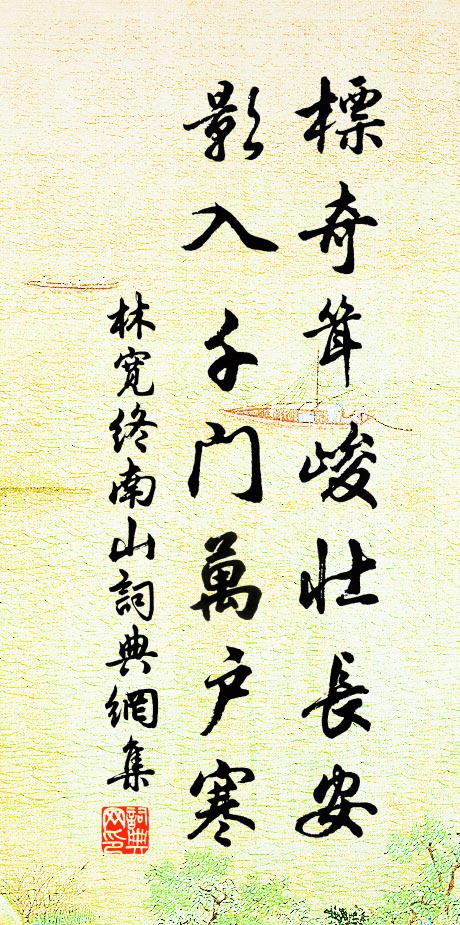 標奇聳峻壯長安
影入千門萬户寒
林寬終南山詞典網集
詞典网印